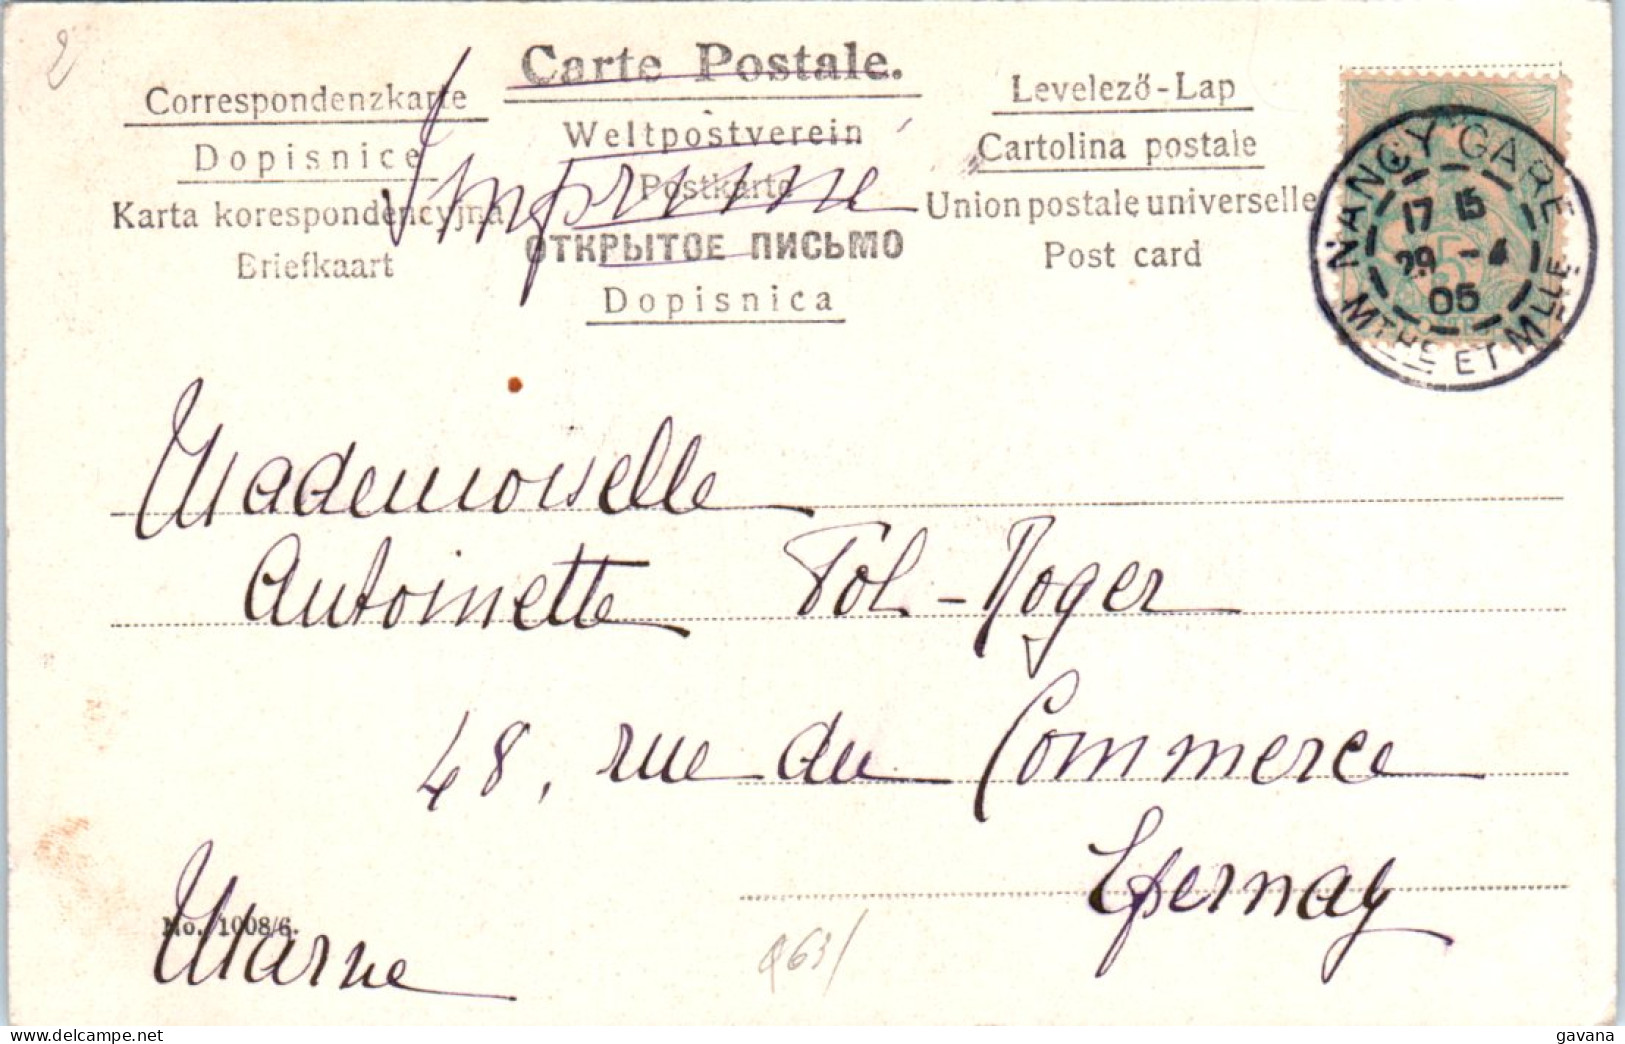 2
Carte Postale.
Correspondenzkarte
Weltpostverein
Levelező-Lap
Dopisnice
Postkarte
Cartolina postale
Imprimé
Karta korespondencyjna
ОТКРЫТОЕ ПИСЬМО
Union postale universelle
Briefkaart
Dopisnica
Post card
NANCY GARE
17 15
29 -4
05
MTHE ET MLLE
Mademoiselle
Antoinette Pol-Roger
48, rue du Commerce
Epernay
No. 1008/6.
Marne
gavana